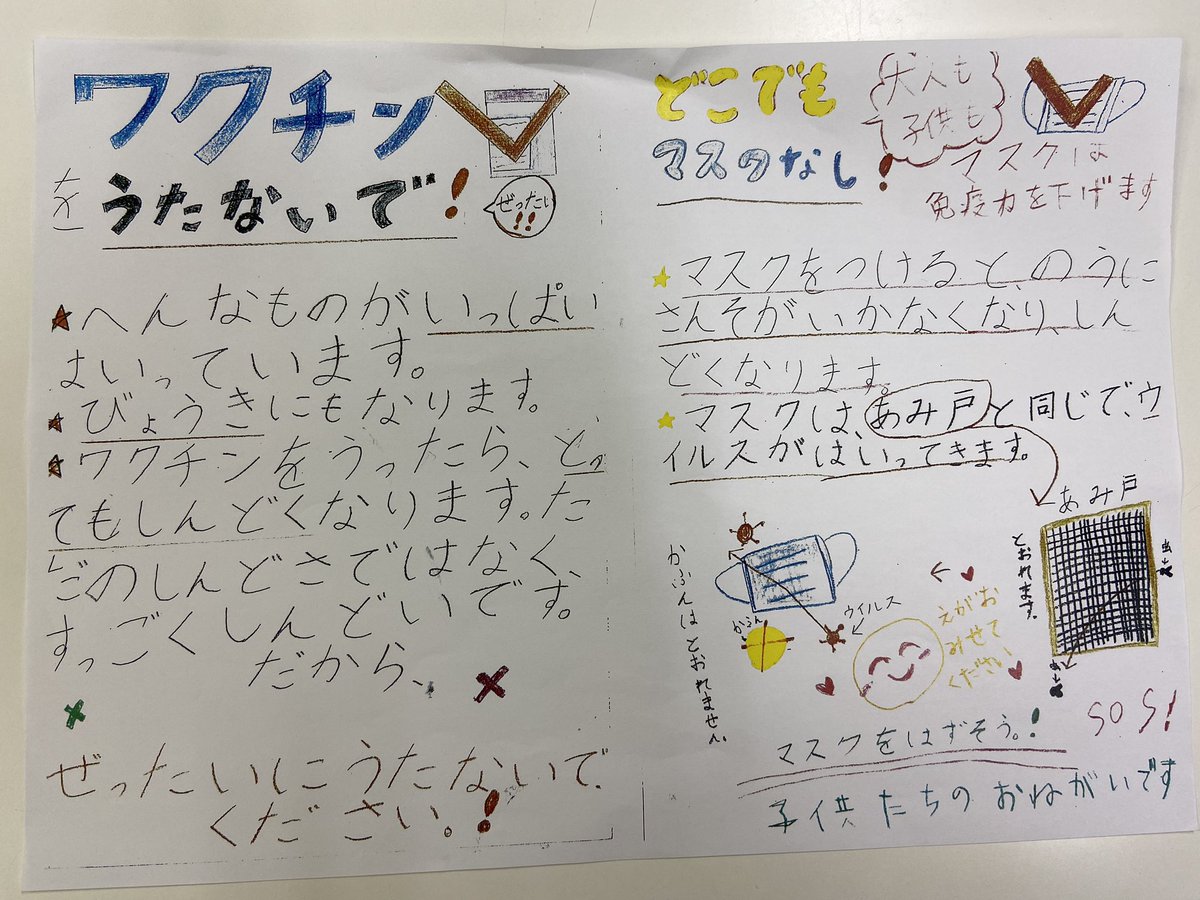 ワクチン
を うたないで!
ぜったい
!!
★へんなものがいっぱい
はいっています。
★びょうきにもなります。
★ワクチンをうったら、とっ
てもしんどくなります。た
だのしんどさではなく、
すっごくしんどいです。
だから、
ぜったいにうたないで
ください。!
どこでも
マスクなし!
大人も
子供も
マスクは
免疫力を下げます
★マスクをつけると、のうに
さんそがいかなくなり、しん
どくなります。
★マスクは、あみ戸と同じで、ウ
イルスがはいってきます。
あみ戸
とおれます。
虫→
虫→
かふんはとおれません。
かふん
ウイルス
えがお
みせて
ください
マスクをはずそう。!
SOS!
子供たちのおねがいです